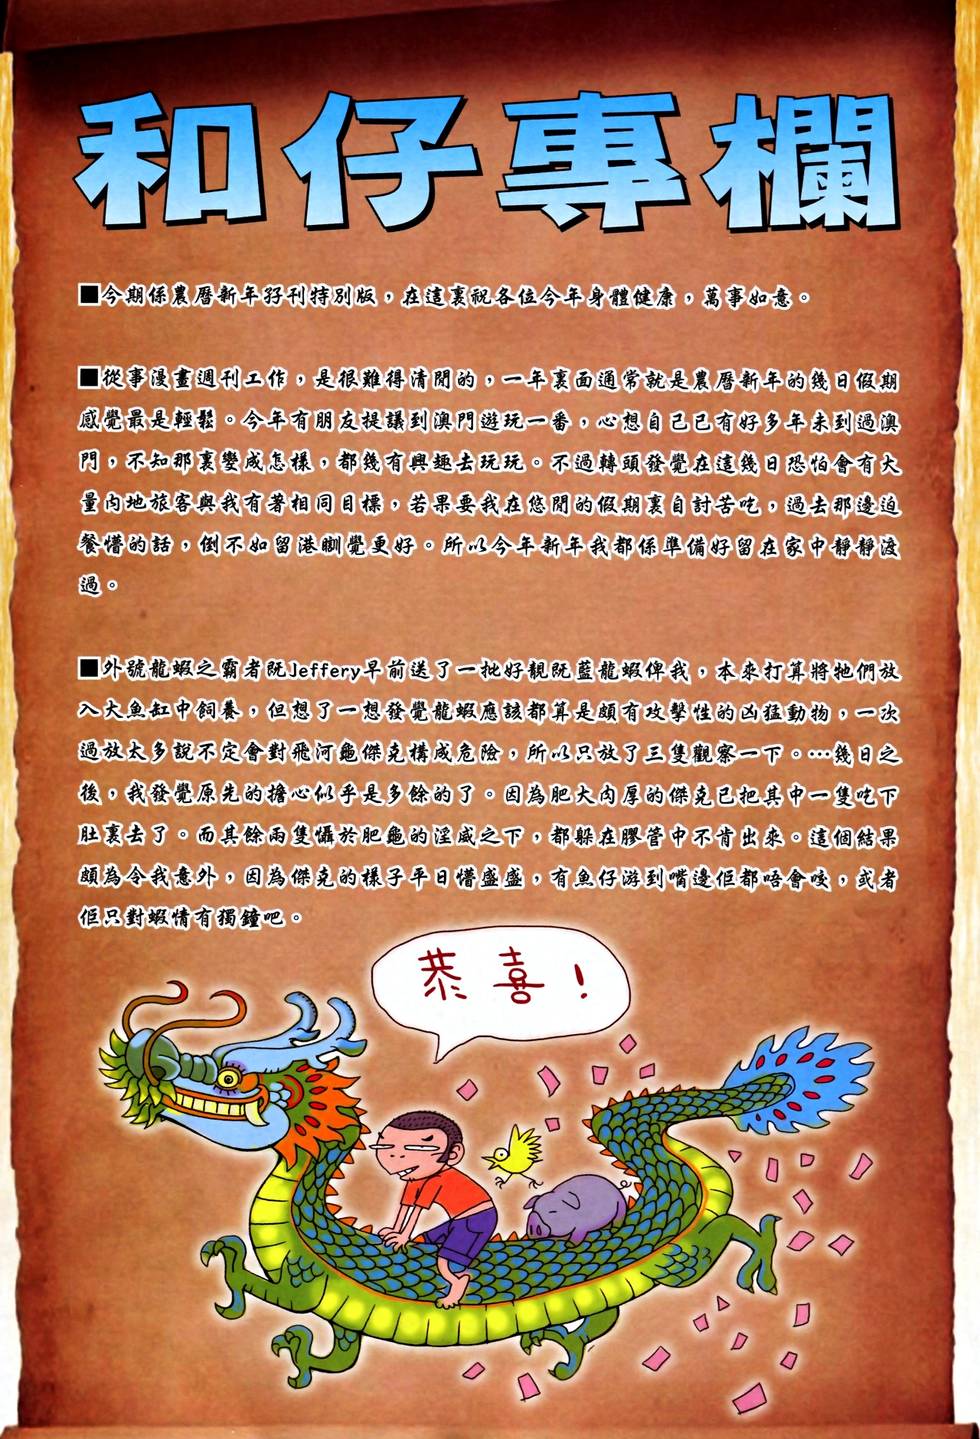 和仔專欄
■今期係農曆新年孖刊特別版，在這裏祝各位今年身體健康，萬事如意。
■從事漫畫週刊工作，是很難得清閒的，一年裏面通常就是農曆新年的幾日假期
感覺最是輕鬆。今年有朋友提議到澳門遊玩一番，心想自己已有好多年未到過澳
門，不知那裏變成怎樣，都幾有興趣去玩玩。不過轉頭發覺在這幾日恐怕會有大
量內地旅客與我有著相同目標，若果要我在悠閒的假期裏自討苦吃，過去那邊迫
餐懵的話，倒不如留港瞓覺更好。所以今年新年我都係準備好留在家中靜靜渡
過。
■外號龍蝦之霸者既Jeffery早前送了一批好靚既藍龍蝦俾我，本來打算將牠們放
入大魚缸中飼養，但想了一想發覺龍蝦應該都算是頗有攻擊性的凶猛動物，一次
過放太多說不定會對飛河龜傑克構成危險，所以只放了三隻觀察一下。…幾日之
後，我發覺原先的擔心似乎是多餘的了。因為肥大肉厚的傑克已把其中一隻吃下
肚裏去了。而其餘兩隻懾於肥龜的淫威之下，都躲在膠管中不肯出來。這個結果
頗為令我意外，因為傑克的樣子平日懵盛盛，有魚仔游到嘴邊佢都唔會咬，或者
佢只對蝦情有獨鐘吧。
恭喜！